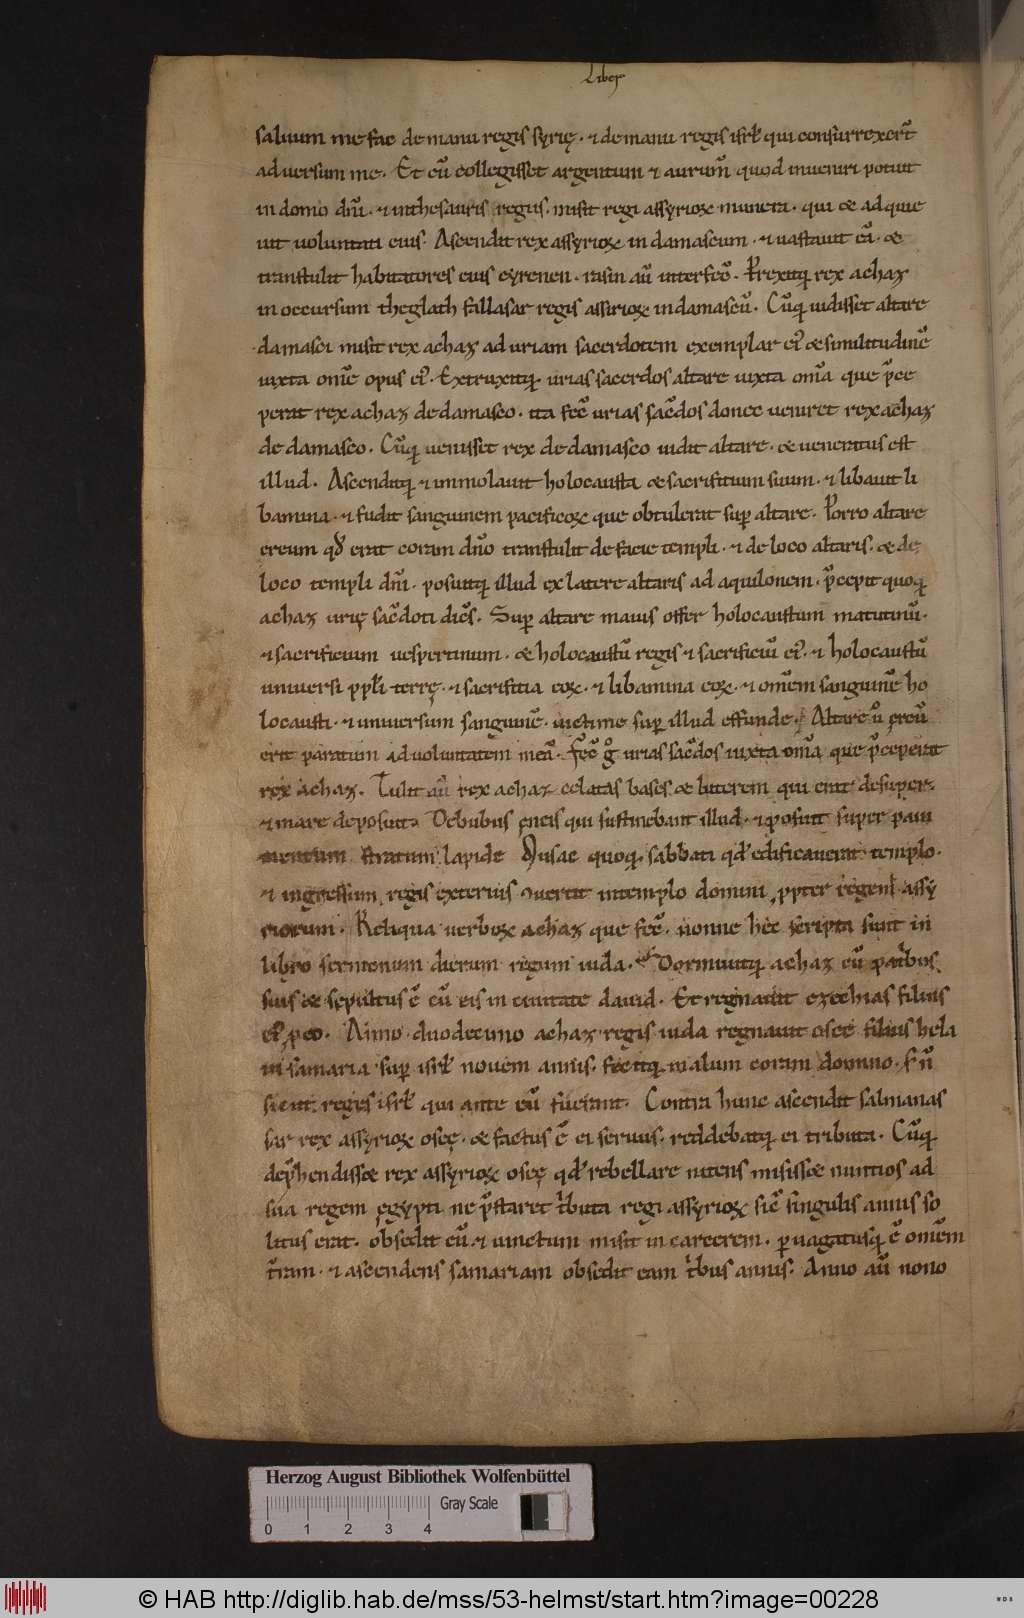 Liber
saluum me fac de manu regis syrię · ⁊ de manu regis isrł qui consurrexer̄t
aduersum me. Et cū collegisset argentum ⁊ aurum̄ quod inueniri potuit
in domo dn̄i · ⁊ in thesauris regus. misit regi assyrioꝝ munera · qui & adquie
uit uoluntati eius. Ascendit rex assyrioꝝ in damascum · ⁊ uastauit eā · &
transtulit habitatores eius cyrenen · rasin aū interfec̄ · Perrexitqꝫ rex achaz
in occursum theglath fallasar regis assirioꝝ in damascū. Cūqꝫ uidisset altare
damasci misit rex achaz ad uriam sacerdotem exemplar eiꝰ & similitudinē
iuxta om̄e opus eiꝰ. Extruxitqꝫ urias sacerdos altare iuxta om̄a que p̄ce
perat rex achaz de damasco · ita fec̄ urias sac̄dos donec ueniret rex achaz
de damasco. Cūqꝫ uenisset rex de damasco uidit altare · & ueneratus est
illud. Ascenditqꝫ ⁊ immolauit holocausta & sacrifitium suum · ⁊ libauit li
bamina · ⁊ fudit sanguinem pacificoꝝ que obtulerat suꝑ altare. Porro altare
ereum qđ erat coram dn̄o transtulit de facie templi · ⁊ de loco altaris · & de
loco templi dn̄i · posuitqꝫ illud ex latere altaris ad aquilonem · p̄cepit quoqꝫ
achaz urię sac̄doti dic̄s. Suꝑ altare maius offer holocaustum matutinū ·
⁊ sacrificium uespertinum · & holocaustū regis ⁊ sacrificiū eiꝰ · ⁊ holocaustū
uniuersi pp̄li terrę · ⁊ sacrifitia eoꝝ · ⁊ libamina eoꝝ · ⁊ omēm sanguinē ho
locausti · ⁊ uniuersum sanguinē · uictime suꝑ illud effunde. Altare u̅ ęreū
erit paratum ad uoluntatem meā. Fec̄ g̊ urias sac̄dos iuxta om̄a que p̄ceperat
rex achaz. Tulit aū rex achaz celatas bases & luterem qui erat desuper ·
⁊ mare deposuit De bubus ęneis qui sustinebant illud · ⁊ posuit super paui
mentum stratum lapide Musac quoqꝫ sabbati qđ edificauerat templo ·
⁊ ingressum regis exterius ꝯuertit in templo domini ꝓpter regem assy
riorum. Reliqua uerboꝝ achaz que fec̄ · nonne hec scripta sunt in
libro sermonum dierum regum iuda. Dormiuitqꝫ achaz cū patribus
suis & sepultus ē cū eis in ciuitate dauid. Et regnauit ezechias filius
eiꝰ ꝓ eo. Anno duodecimo achaz regis iuda regnauit osee filius hela
in samaria suꝑ isrł nouem annis. fecitqꝫ malum coram domino. s; n̄
sicut reges isrł qui ante eū fuerant. Contra hunc ascendit salmanas
sar rex assyrioꝝ oseę · & factus ē ei seruus. reddebatqꝫ ei tributa. Cūqꝫ
dep̄hendiss& rex assyrioꝝ oseę qđ rebellare nitens misiss& nuntios ad
sua regem ęgypti ne p̄staret t̓buta regi assyrioꝝ sic̄ singulis annis so
litus erat · obsedit eū · ⁊ uinctum misit in carcerem · ꝑuagatusqꝫ ē omēm
t̄ram · ⁊ ascendens samariam obsedit eam t̓bus annis. Anno aū nono
Herzog August Bibliothek Wolfenbüttel
Gray Scale
0 1 2 3 4
© HAB http://diglib.hab.de/mss/53-helmst/start.htm?image=00228